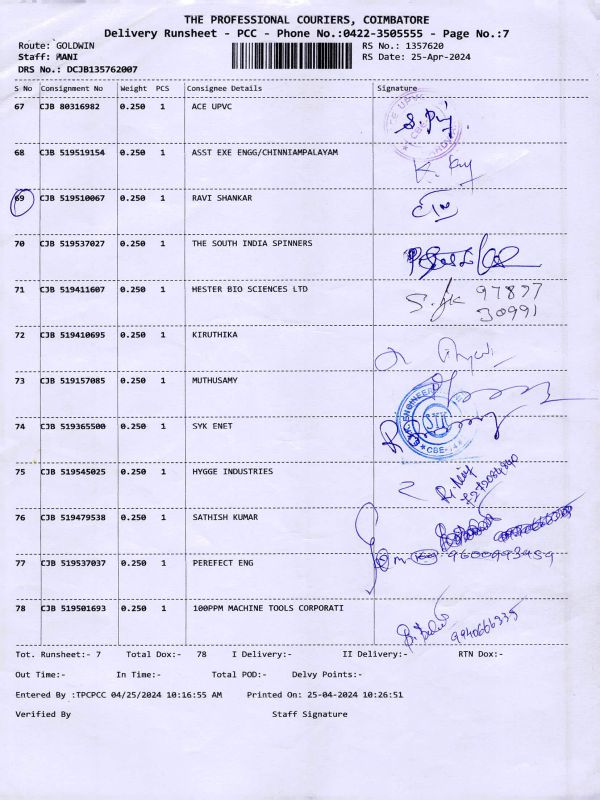 THE PROFESSIONAL COURIERS, COIMBATORE
Delivery Runsheet - PCC - Phone No.:0422-3505555 - Page No.:7
Route: GOLDWIN RS No.: 1357620
Staff: MANI RS Date: 25-Apr-2024
DRS No.: DCJB135762007
S No Consignment No Weight PCS Consignee Details Signature
67 CJB 80316982 0.250 1 ACE UPVC
68 CJB 519519154 0.250 1 ASST EXE ENGG/CHINNIAMPALAYAM
69 CJB 519510067 0.250 1 RAVI SHANKAR
70 CJB 519537027 0.250 1 THE SOUTH INDIA SPINNERS
71 CJB 519411607 0.250 1 HESTER BIO SCIENCES LTD 97877
30991
72 CJB 519410695 0.250 1 KIRUTHIKA
73 CJB 519157085 0.250 1 MUTHUSAMY
74 CJB 519365500 0.250 1 SYK ENET
75 CJB 519545025 0.250 1 HYGGE INDUSTRIES
76 CJB 519479538 0.250 1 SATHISH KUMAR
77 CJB 519537037 0.250 1 PEREFECT ENG
78 CJB 519501693 0.250 1 100PPM MACHINE TOOLS CORPORATI 9940666335
Tot. Runsheet:- 7 Total Dox:- 78 I Delivery:- II Delivery:- RTN Dox:-
Out Time:- In Time:- Total POD:- Delvy Points:-
Entered By :TPCPCC 04/25/2024 10:16:55 AM Printed On: 25-04-2024 10:26:51
Verified By Staff Signature